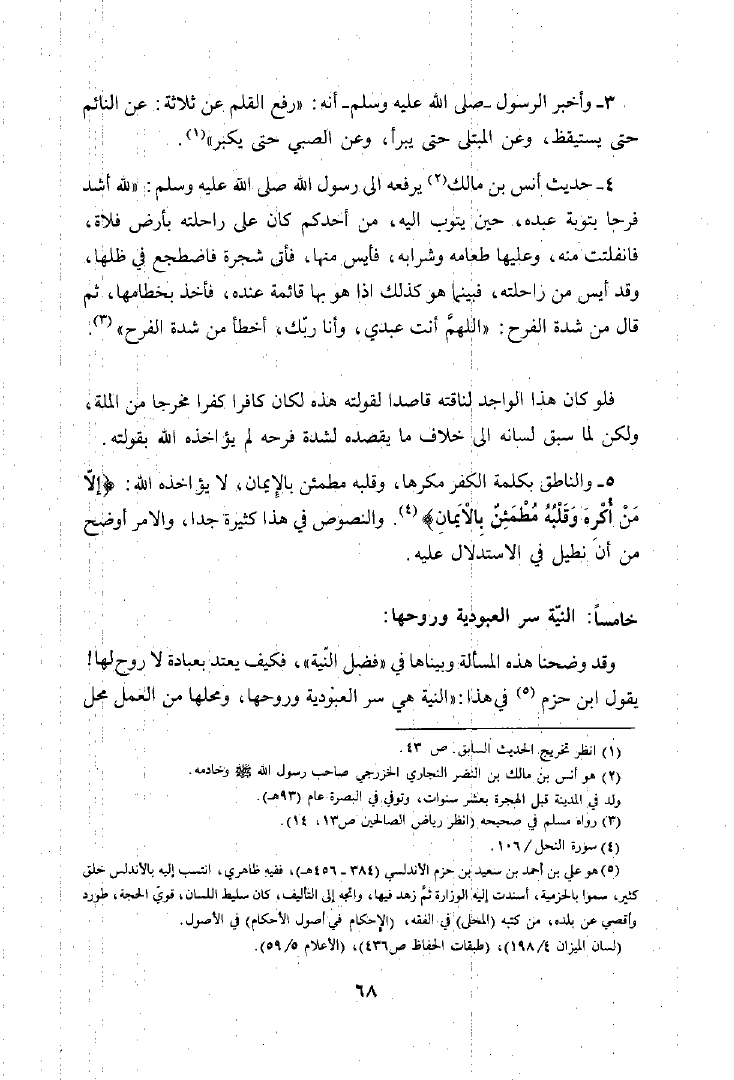 ٣ـ وأخبر الرسول ـصلى الله عليه وسلمـ أنه: «رفع القلم عن ثلاثة: عن النائم
حتى يستيقظ، وعن المبتلى حتى يبرأ، وعن الصبي حتى يكبر»(١).
٤ـ حديث أنس بن مالك(٢) يرفعه الى رسول الله صلى الله عليه وسلم: «لله أشد
فرحا بتوبة عبده، حين يتوب اليه، من أحدكم كان على راحلته بأرض فلاة،
فانفلتت منه، وعليها طعامه وشرابه، فأيس منها، فأتى شجرة فاضطجع في ظلها،
وقد أيس من راحلته، فبينما هو كذلك اذا هو بها قائمة عنده، فأخذ بخطامها، ثم
قال من شدة الفرح: «اللهمَّ أنت عبدي، وأنا ربّك، أخطأ من شدة الفرح»(٣).
فلو كان هذا الواجد لناقته قاصدا لقولته هذه لكان كافرا كفرا مخرجا من الملة،
ولكن لما سبق لسانه الى خلاف ما يقصده لشدة فرحه لم يؤاخذه الله بقولته.
٥ـ والناطق بكلمة الكفر مكرها، وقلبه مطمئن بالإيمان، لا يؤاخذه الله: ﴿إلّا
مَنْ أُكْرِهَ وَقَلْبُهُ مُطْمَئِنٌ بِالْاَيمانِ﴾(٤). والنصوص في هذا كثيرة جدا، والامر أوضح
من أن نطيل في الاستدلال عليه.
خامساً: النيّة سر العبودية وروحها:
وقد وضحنا هذه المسألة وبيناها في «فضل النّية»، فكيف يعتد بعبادة لا روح لها!
يقول ابن حزم(٥) في هذا: «النية هي سر العبودية وروحها، ومحلها من العمل محل
(١) انظر تخريج الحديث السابق. ص ٤٣.
(٢) هو أنس بن مالك بن النضر النجاري الخزرجي صاحب رسول الله ﷺ وخادمه.
ولد في المدينة قبل الهجرة بعشر سنوات، وتوفي في البصرة عام (٩٣هـ).
(٣) رواه مسلم في صحيحه (انظر رياض الصالحين ص١٣، ١٤).
(٤) سورة النحل/١٠٦.
(٥) هو علي بن أحمد بن سعيد بن حزم الأندلسي (٣٨٤ ـ ٤٥٦هـ)، فقيه ظاهري، انتسب إليه بالأندلس خلق
كثير، سموا بالحزمية، أسندت إليه الوزارة ثمَّ زهد فيها، واتجه إلى التأليف، كان سليط اللسان، قويّ الحجة، طورد
وأقصي عن بلده، من كتبه (المحلى) في الفقه، (الإحكام في أصول الأحكام) في الأصول.
(لسان الميزان ١٩٨/٤)، (طبقات الحفاظ ص٤٣٦)، (الأعلام ٥٩/٥).
٦٨